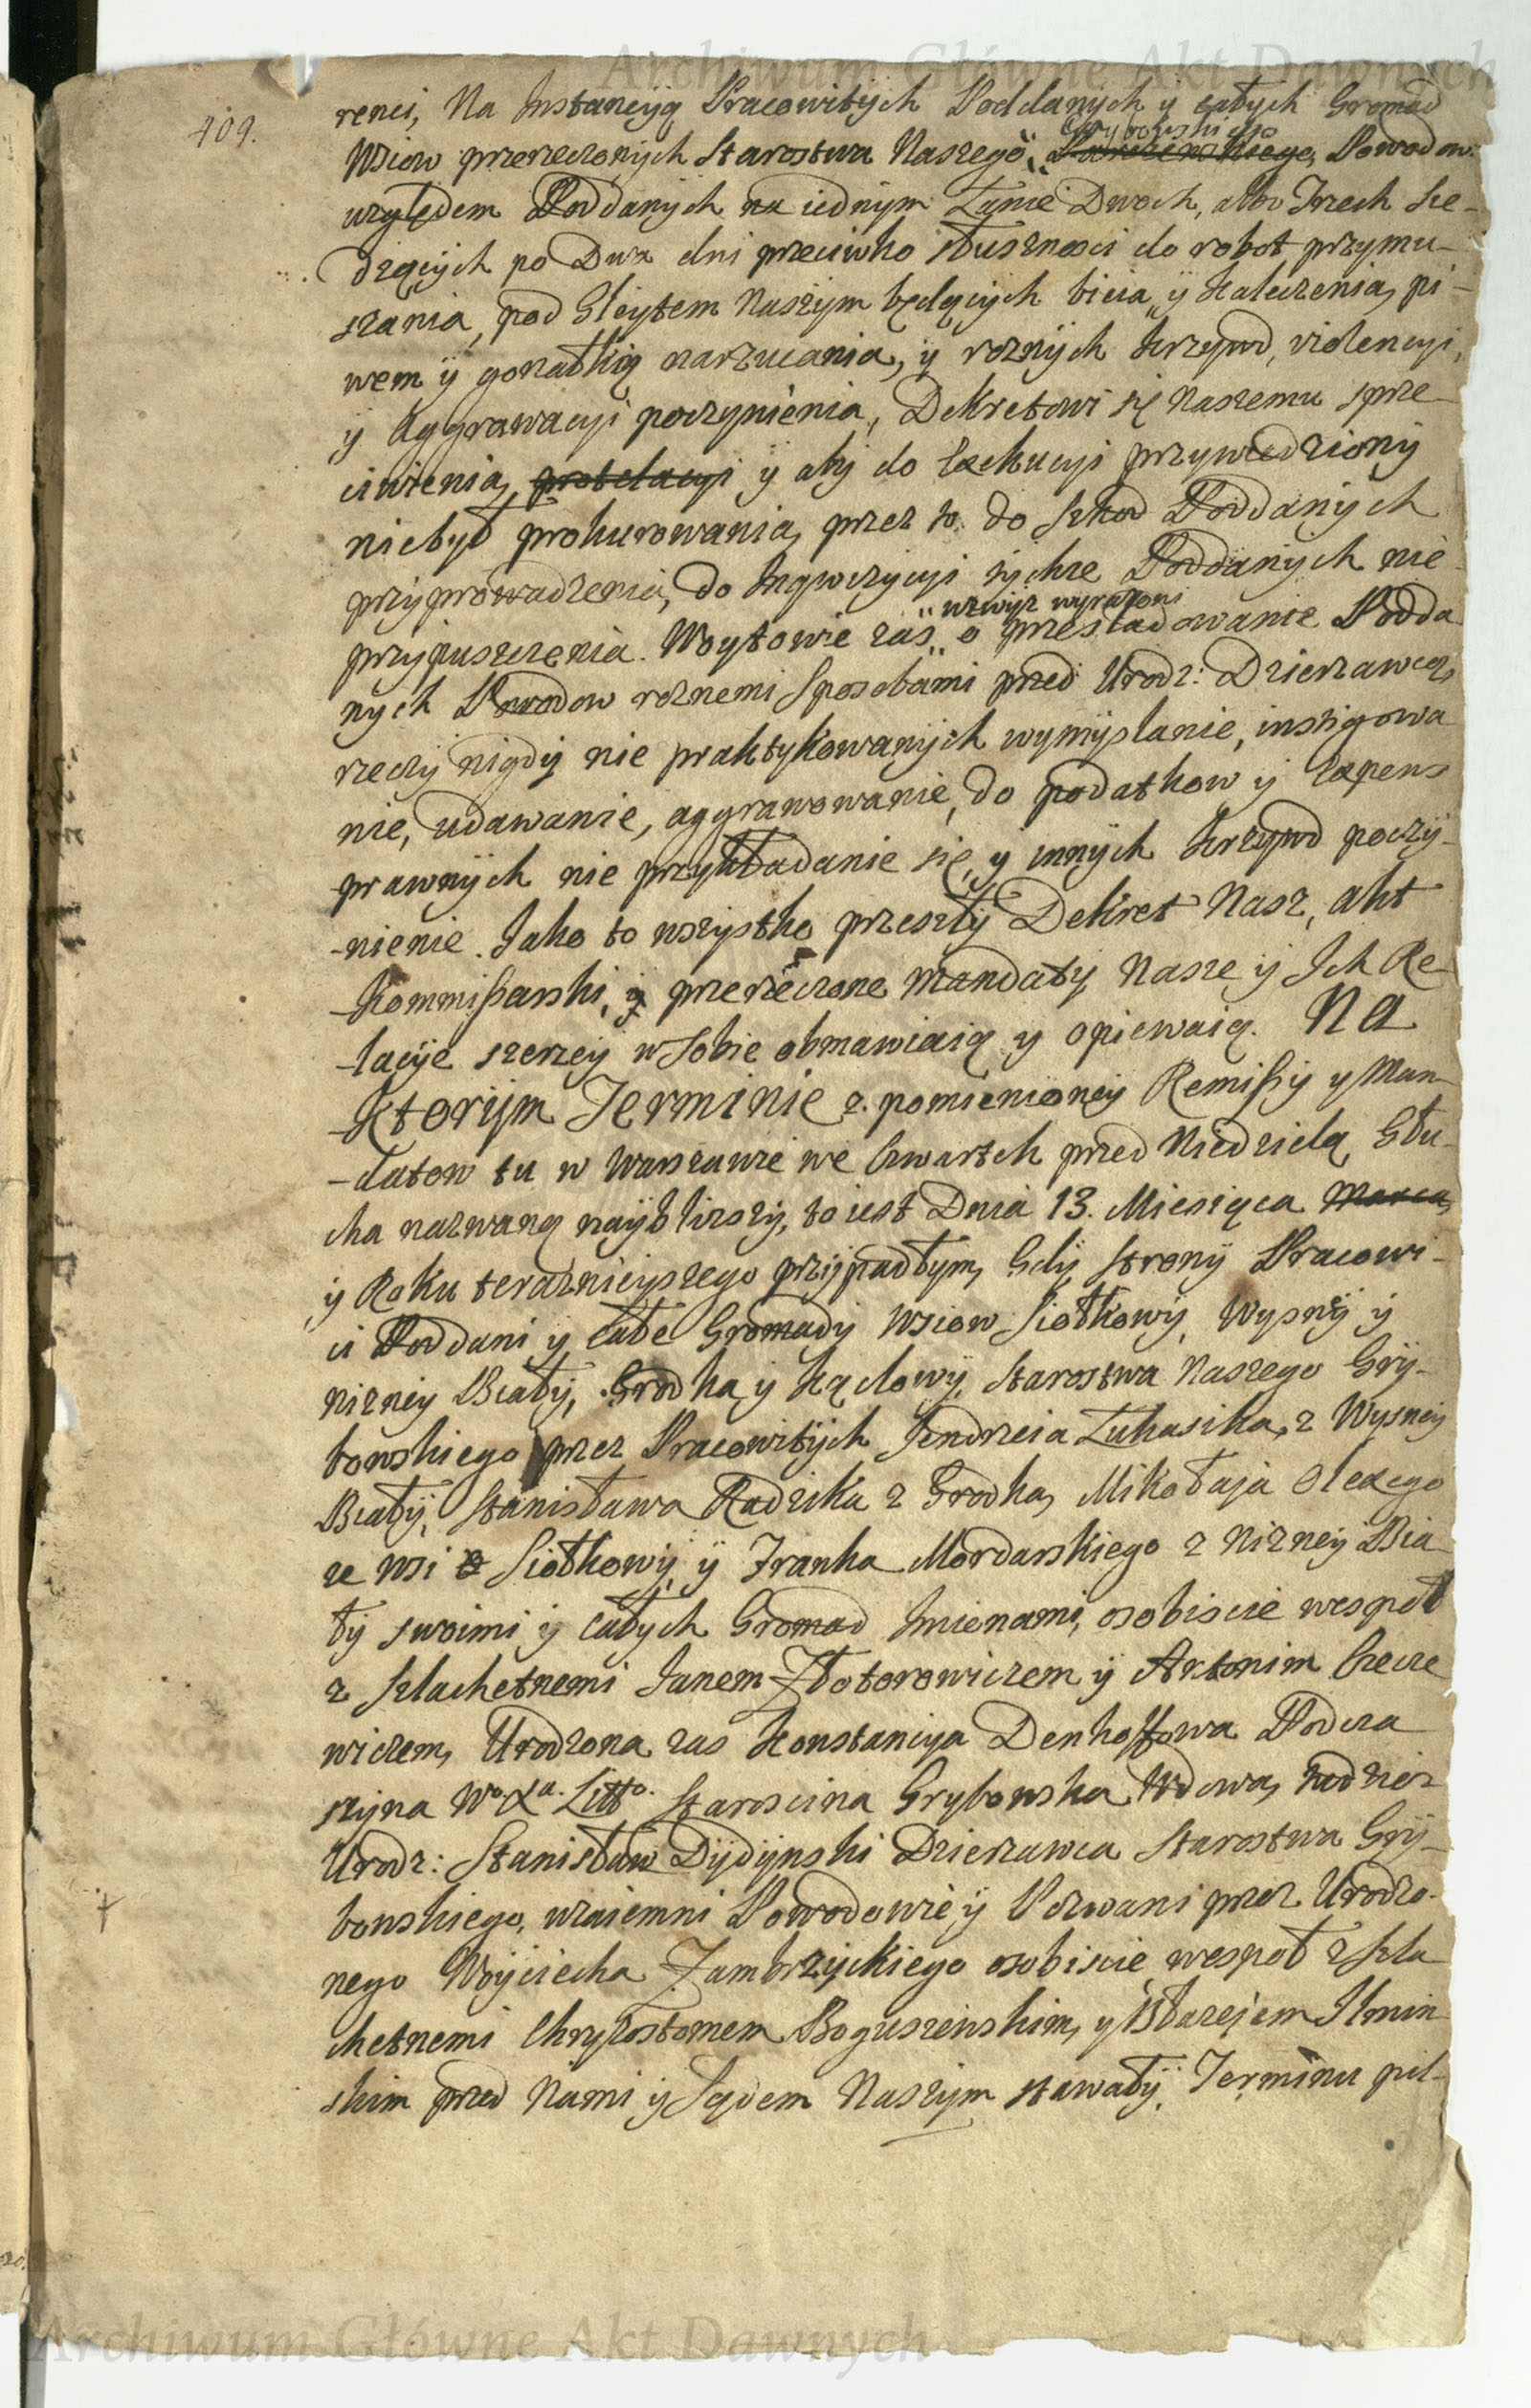 Archiwum Główne Akt Dawnych
409.
renci, Na Instancyią Pracowitych Poddanych y całych Gromad
Wsiow przerzeczonych Starostwa Naszego Grybowskiego Powodow
względem Poddanych na iednym Łanie Dwoch, abo Trzech Sie-
dzących po Dwa dni przeciwko słusznosci do robot przymu-
szania, pod Gleytem Naszym będących bicia, y kaleczenia, pi-
wem y gorzałką narzucania, y roznych krzywd, violencyi,
y Aggrawacyi poczynienia, Dekretowi się Naszemu sprze-
ciwienia, protelacyi y aby do Exekucyi przywiedziony
niebył prokurowania, przez to do szkod Poddanych
przyprowadzenia, do Inqwizycyi tychze Poddanych nie
przypuszczenia. Woytowie zas wzwysz wyrazoni o przesladowanie Podda
nych Powodow roznemi sposobami przed Urodz: Dzierzawcą,
rzeczy nigdy nie praktykowanych wymyslanie, instigowa
nie, udawanie, aggrawowanie, do podatkow y Expens
prawnych nie przykładanie się, y innych krzywd poczy-
-nienie. Jako to wszystko przeszły Dekret Nasz, akt
Kommissarski, y przerzeczone Mandaty Nasze y Ich Re-
-lacye szerzey w sobie obmawiaią y opiewaią. NA
Ktorym Terminie z pomienioney Remissy y Man-
-datow tu w Warszawie we Czwartek przed Niedzielą Głu-
cha nazwaną naybliższy, to iest Dnia 13. Miesiąca Marca,
y Roku teraznieyszego przypadłym, Gdy strony Pracowi-
ci Poddani y całe Gromady Wsiow Siołkowy, Wysny y
Nizney Biały, Grodka y Kąclowy, Starostwa Naszego Gry-
bowskiego przez Pracowitych Jendrzeia Łukasika, z Wysney
Biały, Stanisława Radzika z Grodka, Mikołaja Olexego
ze wsi Siołkowy, y Franka Mordarskiego z Nizney Bia
ły swoimi y całych Gromad Imienami, osobiscie wespoł
z Szlachetnemi Janem Złotorowiczem y Antonim Czecze
wiczem, Urodzona zas Konstancya Denhoffowa Podcza
szyna Wo. Xa. Litto. Staroscina Grybowska Wdowa, tudziez
Urodz: Stanisław Dydynski Dzierzawca Starostwa Gry-
bowskiego, wzaiemni Powodowie y Pozwani przez Urodzo-
nego Woyciecha Zambrzyckiego osobiscie wespoł z Szla
chetnemi Chryzostomem Boguszenskim, y Błazejem Ilmin
skim przed Nami y Sądem Naszym stawały, Terminu pil-
Archiwum Główne Akt Dawnych